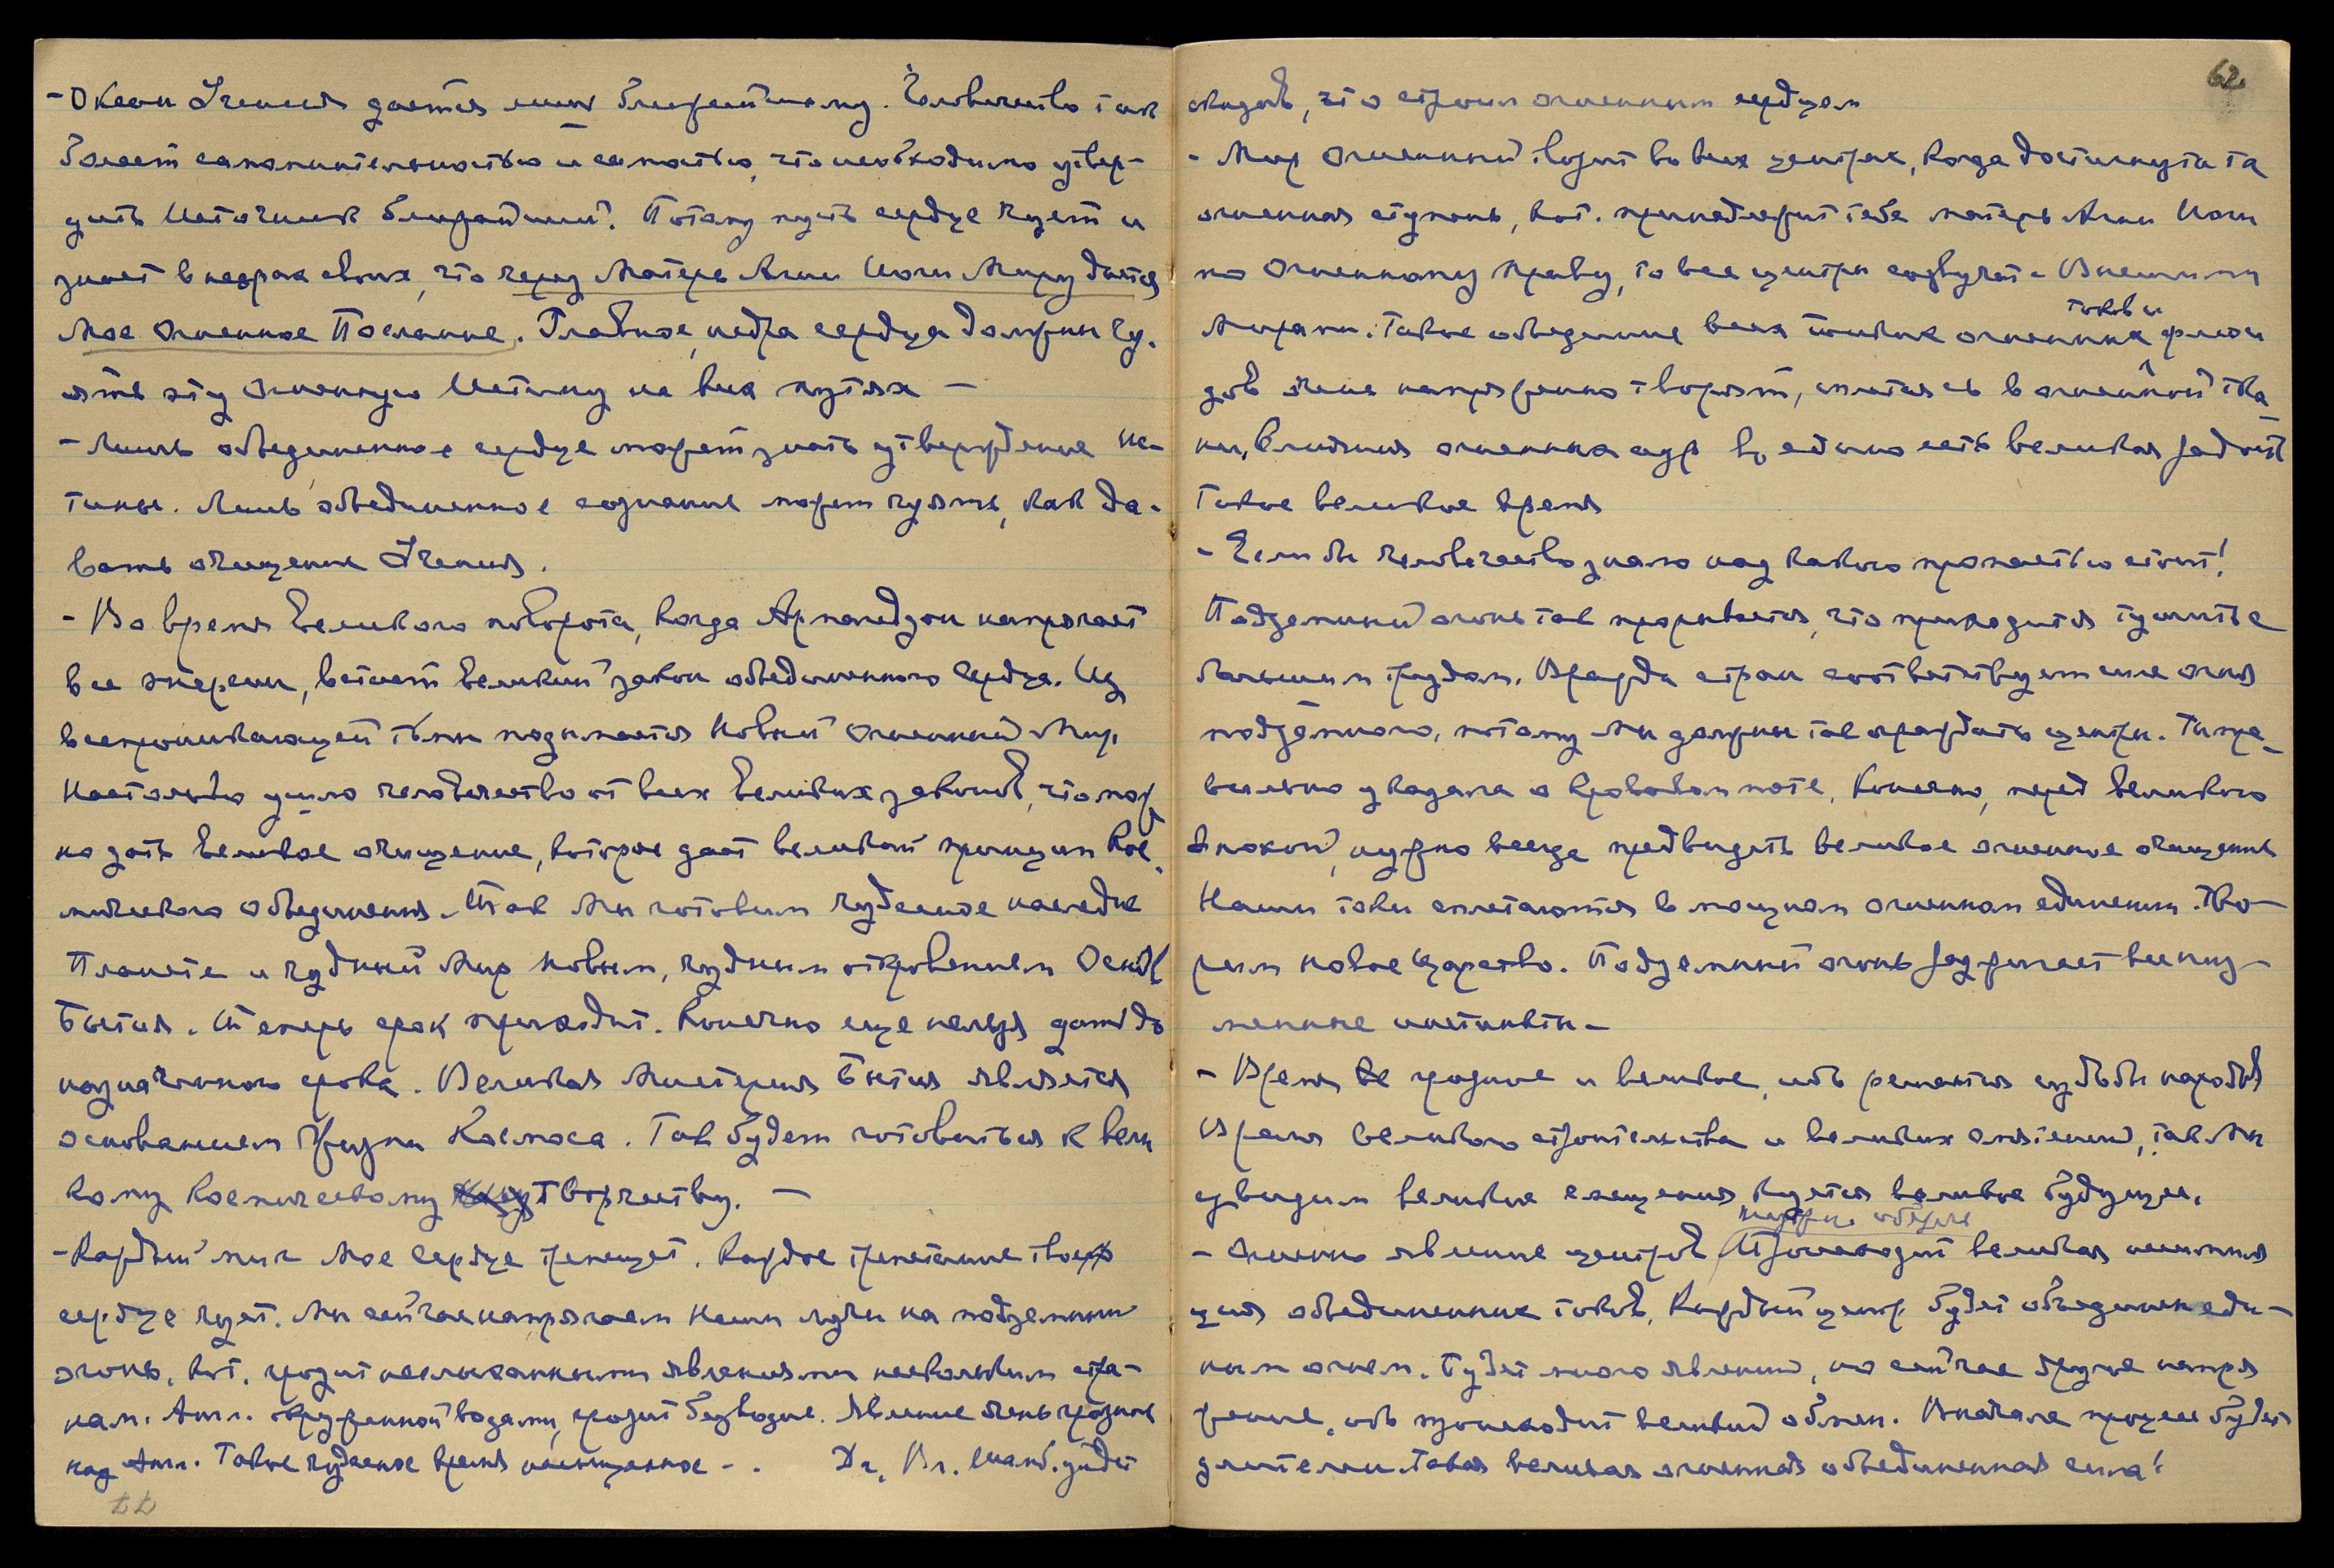 - Океан Учения дается лишь ближайшему. Человечество так
болеет самомнительностью и самостью, что необходимо утвер-
дить Источник ближайший. Потому пусть сердце чует и
знает в недрах своих, что через Матерь Агни Йоги Миру дается
Мое Огненное Послание. Главное, недра сердца должны чу-
ять эту Огненную Истину на всех путях -
- Лишь объединенное сердце может знать утверждение Ис-
тины. Лишь объединенное сознание может чуять, как да-
вать очищение Учения.
- Во время великого поворота, когда Армагеддон напрягает
все энергии, встает великий закон объединенного сердца. Из
всепроникающей тьмы поднимается Новый Огненный Мир.
Настолько ушло человечество от всех великих законов, что мож
но дать великое очищение, которое дает великий принцип Кос-
мического объединения. Так Мы готовим чудесное наследие
Планете и чудный Мир новым, чудным откровением Основ
Бытия. Теперь срок приходит. Конечно еще нельзя дать до
назначенного срока. Великая Мистерия Бытия является
основанием Жизни Космоса. Так будем готовиться к вели
кому Космическому творчеству. -
- Каждый миг Мое Сердце трепещет. Каждое трепетание твое
сердце чует. Мы сейчас напрягаем Наши лучи на подземный
огонь, кот. грозит неслыханными явлениями нескольким стра-
нам. Англ. окруженной водами, грозит безводие. Явление очень грозное
над Англ. Такое чудесное время насыщенное - .
22
62
что строим огненным сердцем
- Мир Огненный творит во всех центрах, когда достигнута та
огненная ступень, кот. принадлежит тебе матерь Агни Йоги
по Огненному праву, то все центры созвучат с Высшими
Мирами. Такое объединение всех тонких огненных токов и флюи
дов очень напряженно творят, сплетаясь в огненной тка-
ни. Слияния огненных аур воедино есть великая радость
Такое великое время
- Если бы человечество знало над какою пропастью стоит!
Подземный огонь так прорывается, что приходится тушить с
большим трудом. Вражда стран соответствует силе огня
подземного, потому Мы должны так ограждать центры. Ты пра-
вильно указала о кровавом поте. Конечно, перед великою
Эпохой, нужно всегда предвидеть великое огненное очищение
Наши токи сплетаются в мощном огненном единении. Тво-
рим новое царство. Подземный огонь разжигает все низ-
менные инстинкты -
- Время грозное и великое, ибо решаются судьбы народов
Время великого строительства и великих смятений, так Мы
увидим великие смещения, куется великое будущее.
- Огненно явление центров Происходит великая
ция объединенных токов. Каждый центр будет объединен еди-
ным огнем. Будет много явлений, но сейчас другое напря
жение, ибо происходит великий обмен. Вначале процесс будет
длителен. Такая великая огненная объединенная сила!